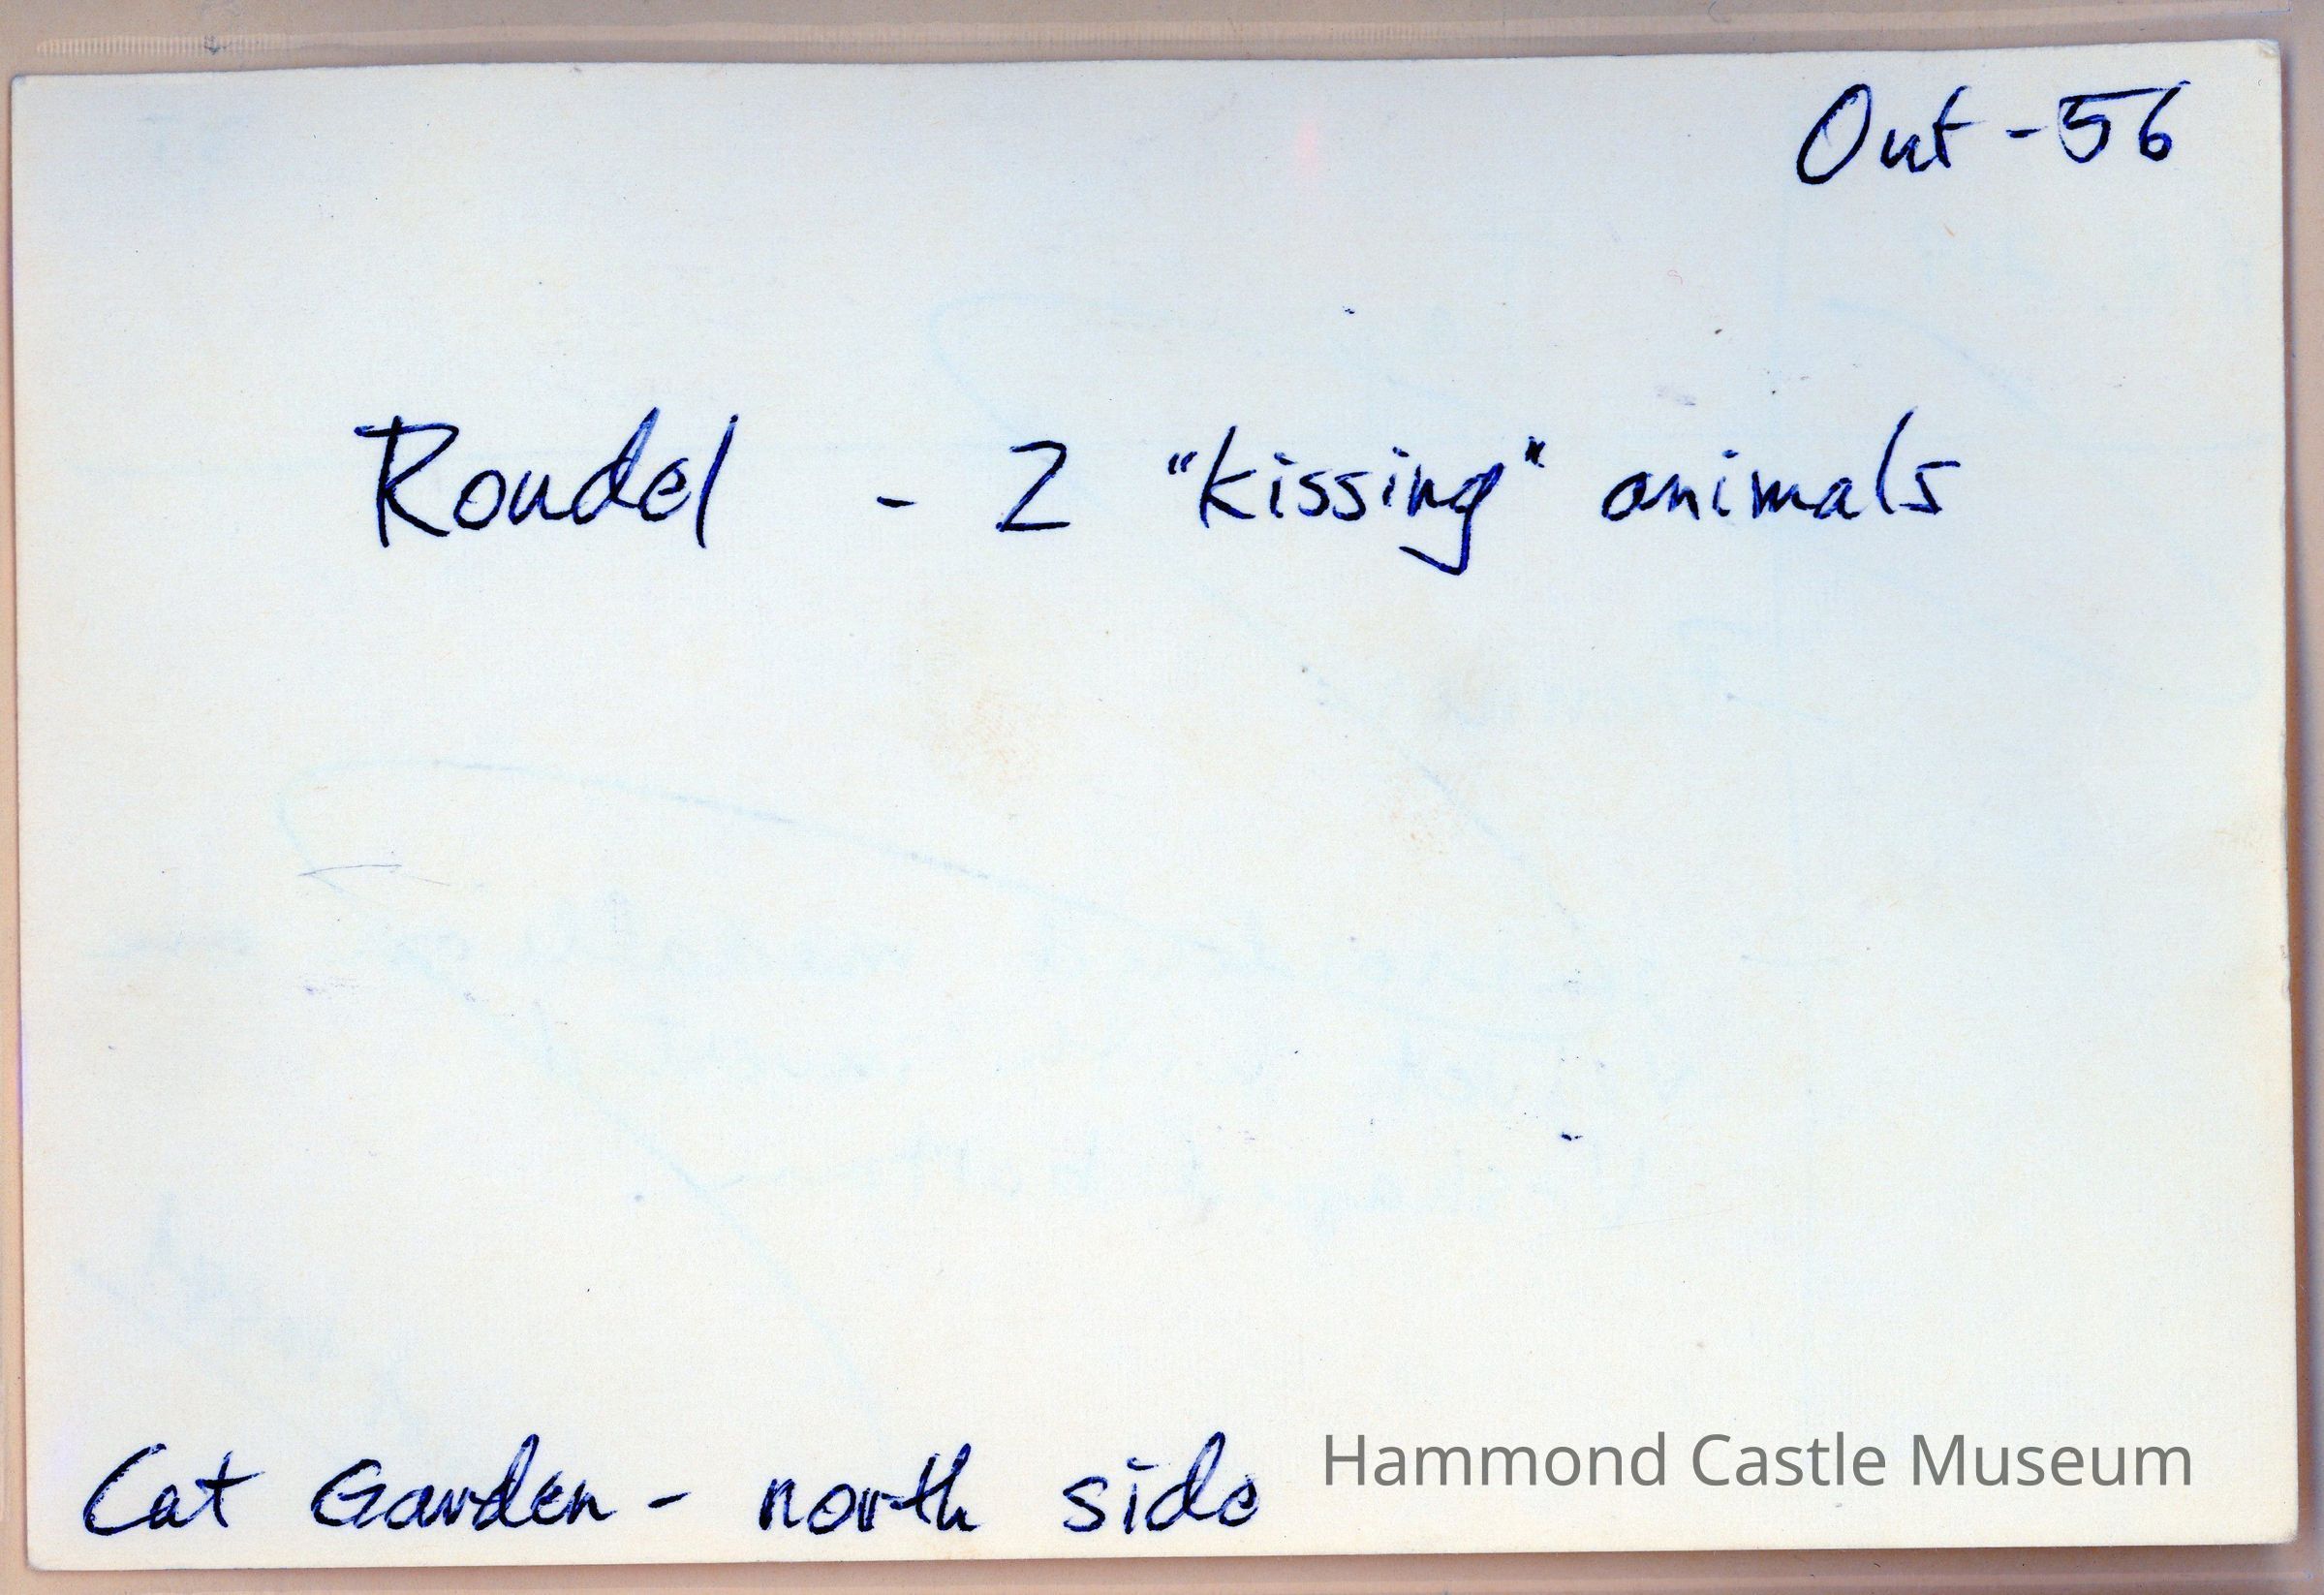 Out - 56
Roudel - 2 "kissing" animals
Cat Garden - north side
Hammond Castle Museum